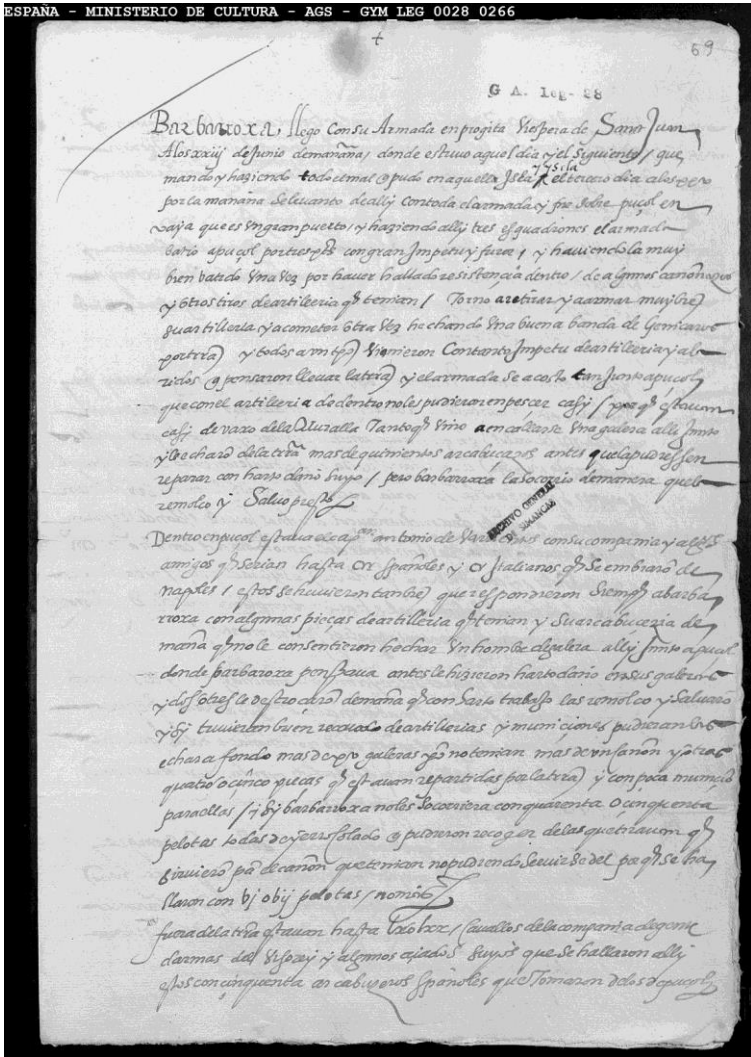 ESPAÑA - MINISTERIO DE CULTURA - AGS - GYM LEG_0028_0266
+
69
G A. leg- 28
Barbarroxa, llego Con su Armada en progita Vispera de Sanct Juan
A los xxiij de Junio de mañana, donde estuvo aquel dia y el siguiente / que
mando y haziendo todo el mal q pudo en aquella Isla / el tercero dia a los
por la mañana se levanto de alli Con toda el armada y fue sobre puçol en
vaya que es un gran puerto / y haziendo alli tres esquadrones el armada
batio a puçol por tres p̃tes con gran Impetu y furia / y haviendo la muy
bien batido Una Vez por haver hallado resistencia dentro / de algunos cañonazos
y otros tiros de artilleria q̃ tenian / Torno a retirar y a armar muy bie͂
su artilleria y acometer otra Vez hechando Una buena banda de Geniçaros
por trr̃a y todos a un tp̃o Vinieron Con tanto Impetu de artilleria y ala
ridos q pensaron llevar la trr̃a y el armada se acosto tan Junto a puçol
que con el artilleria de dentro no les pudieron enpescer casi / porq̃ estavan
casi de vaxo de la Muralla Tanto q̃ Vino a encallarse Una galera alli Junto
y le echaro͂ de la trr̃a mas de quinientos arcabuçazos antes que la pudiessen
reparar con harto daño suyo / pero barbarroxa la socorrio de manera que la
remolco y Salvo presto
ARCHIVO GENERAL
DE SIMANCAS
Dentro en puçol estava el cap. antonio de con su compania y algũs
amigos q̃ serian hasta cr spañoles y cr Italianos q̃ Se embiaro͂ de
Naples / estos se tuvieron tan bie͂ que respondieron siemp̃ a barba
rroxa con algunas pieças de artilleria q̃ tenian y su arcabuzeria de
mañã q̃ no le consentieron hechar Un hombre de galera alli Junto a puçol
donde barbaroxa pensava antes le hizieron harto daño en sus galeras
y dos o tres le destroçaro͂ de manã q̃ con harto trabajo las remolco y Salvaro͂
y si tuvieran buen recavdo de artillerias y municiones pudieran
echar a fondo mas de galeras p̃o no tenian mas de un Cañon y otras
quatro o cinco pieças q̃ estavan repartidas por la trr̃a y con poca municio͂
para ellas / y si barbarroxa no les Socorriera con quarenta o cinquenta
pelotas todas de yerro Colado q pudieron recoger de las que tiravan q̃
sirviero͂ pã el cañon que tenian no pudieron servirse del porq̃ se ha
llaron con vj o vij pelotas / no mas
fuera de la trr̃a estavan hasta lx o lxx / Cavallos de la compania de gente
darmas del Visorey y algunos criados suyos que se hallaron alli
estos con cinquenta arcabuzeros spañoles que Tomaron de los de puçol